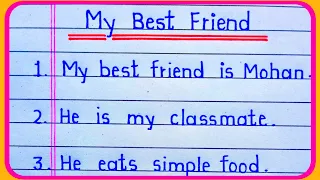 My Best Friend
1. My best friend is Mohan.
2. He is my classmate.
3. He eats simple food.